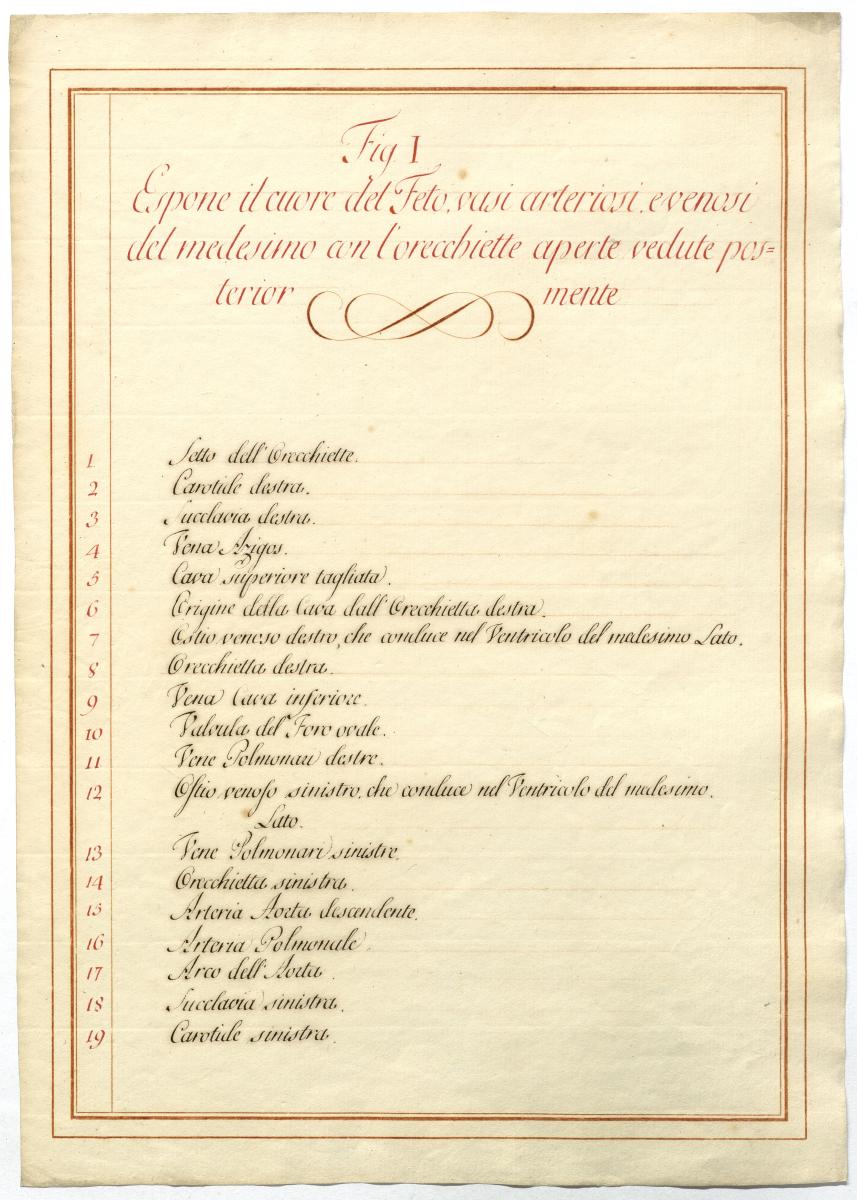 Fig I
Espone il cuore del Feto, vasi arteriosi, e venosi
del medesimo con l'orecchiette aperte vedute pos=
terior mente
1 Setto dell'Orecchiette.
2 Carotide destra.
3 Succlavia destra.
4 Vena Azigos.
5 Cava superiore tagliata.
6 Origine della Cava dall'Orecchietta destra.
7 Ostio venoso destro, che conduce nel Ventricolo del medesimo Lato.
8 Orecchietta destra.
9 Vena Cava inferiore.
10 Valvula del Foro ovale.
11 Vene Polmonari destre.
12 Oſtio venoſo sinistro, che conduce nel Ventricolo del medesimo.
Lato.
13 Vene Polmonari sinistre.
14 Orecchietta sinistra.
15 Arteria Aorta descendente.
16 Arteria Polmonale.
17 Arco dell'Aorta.
18 Succlavia sinistra.
19 Carotide sinistra.